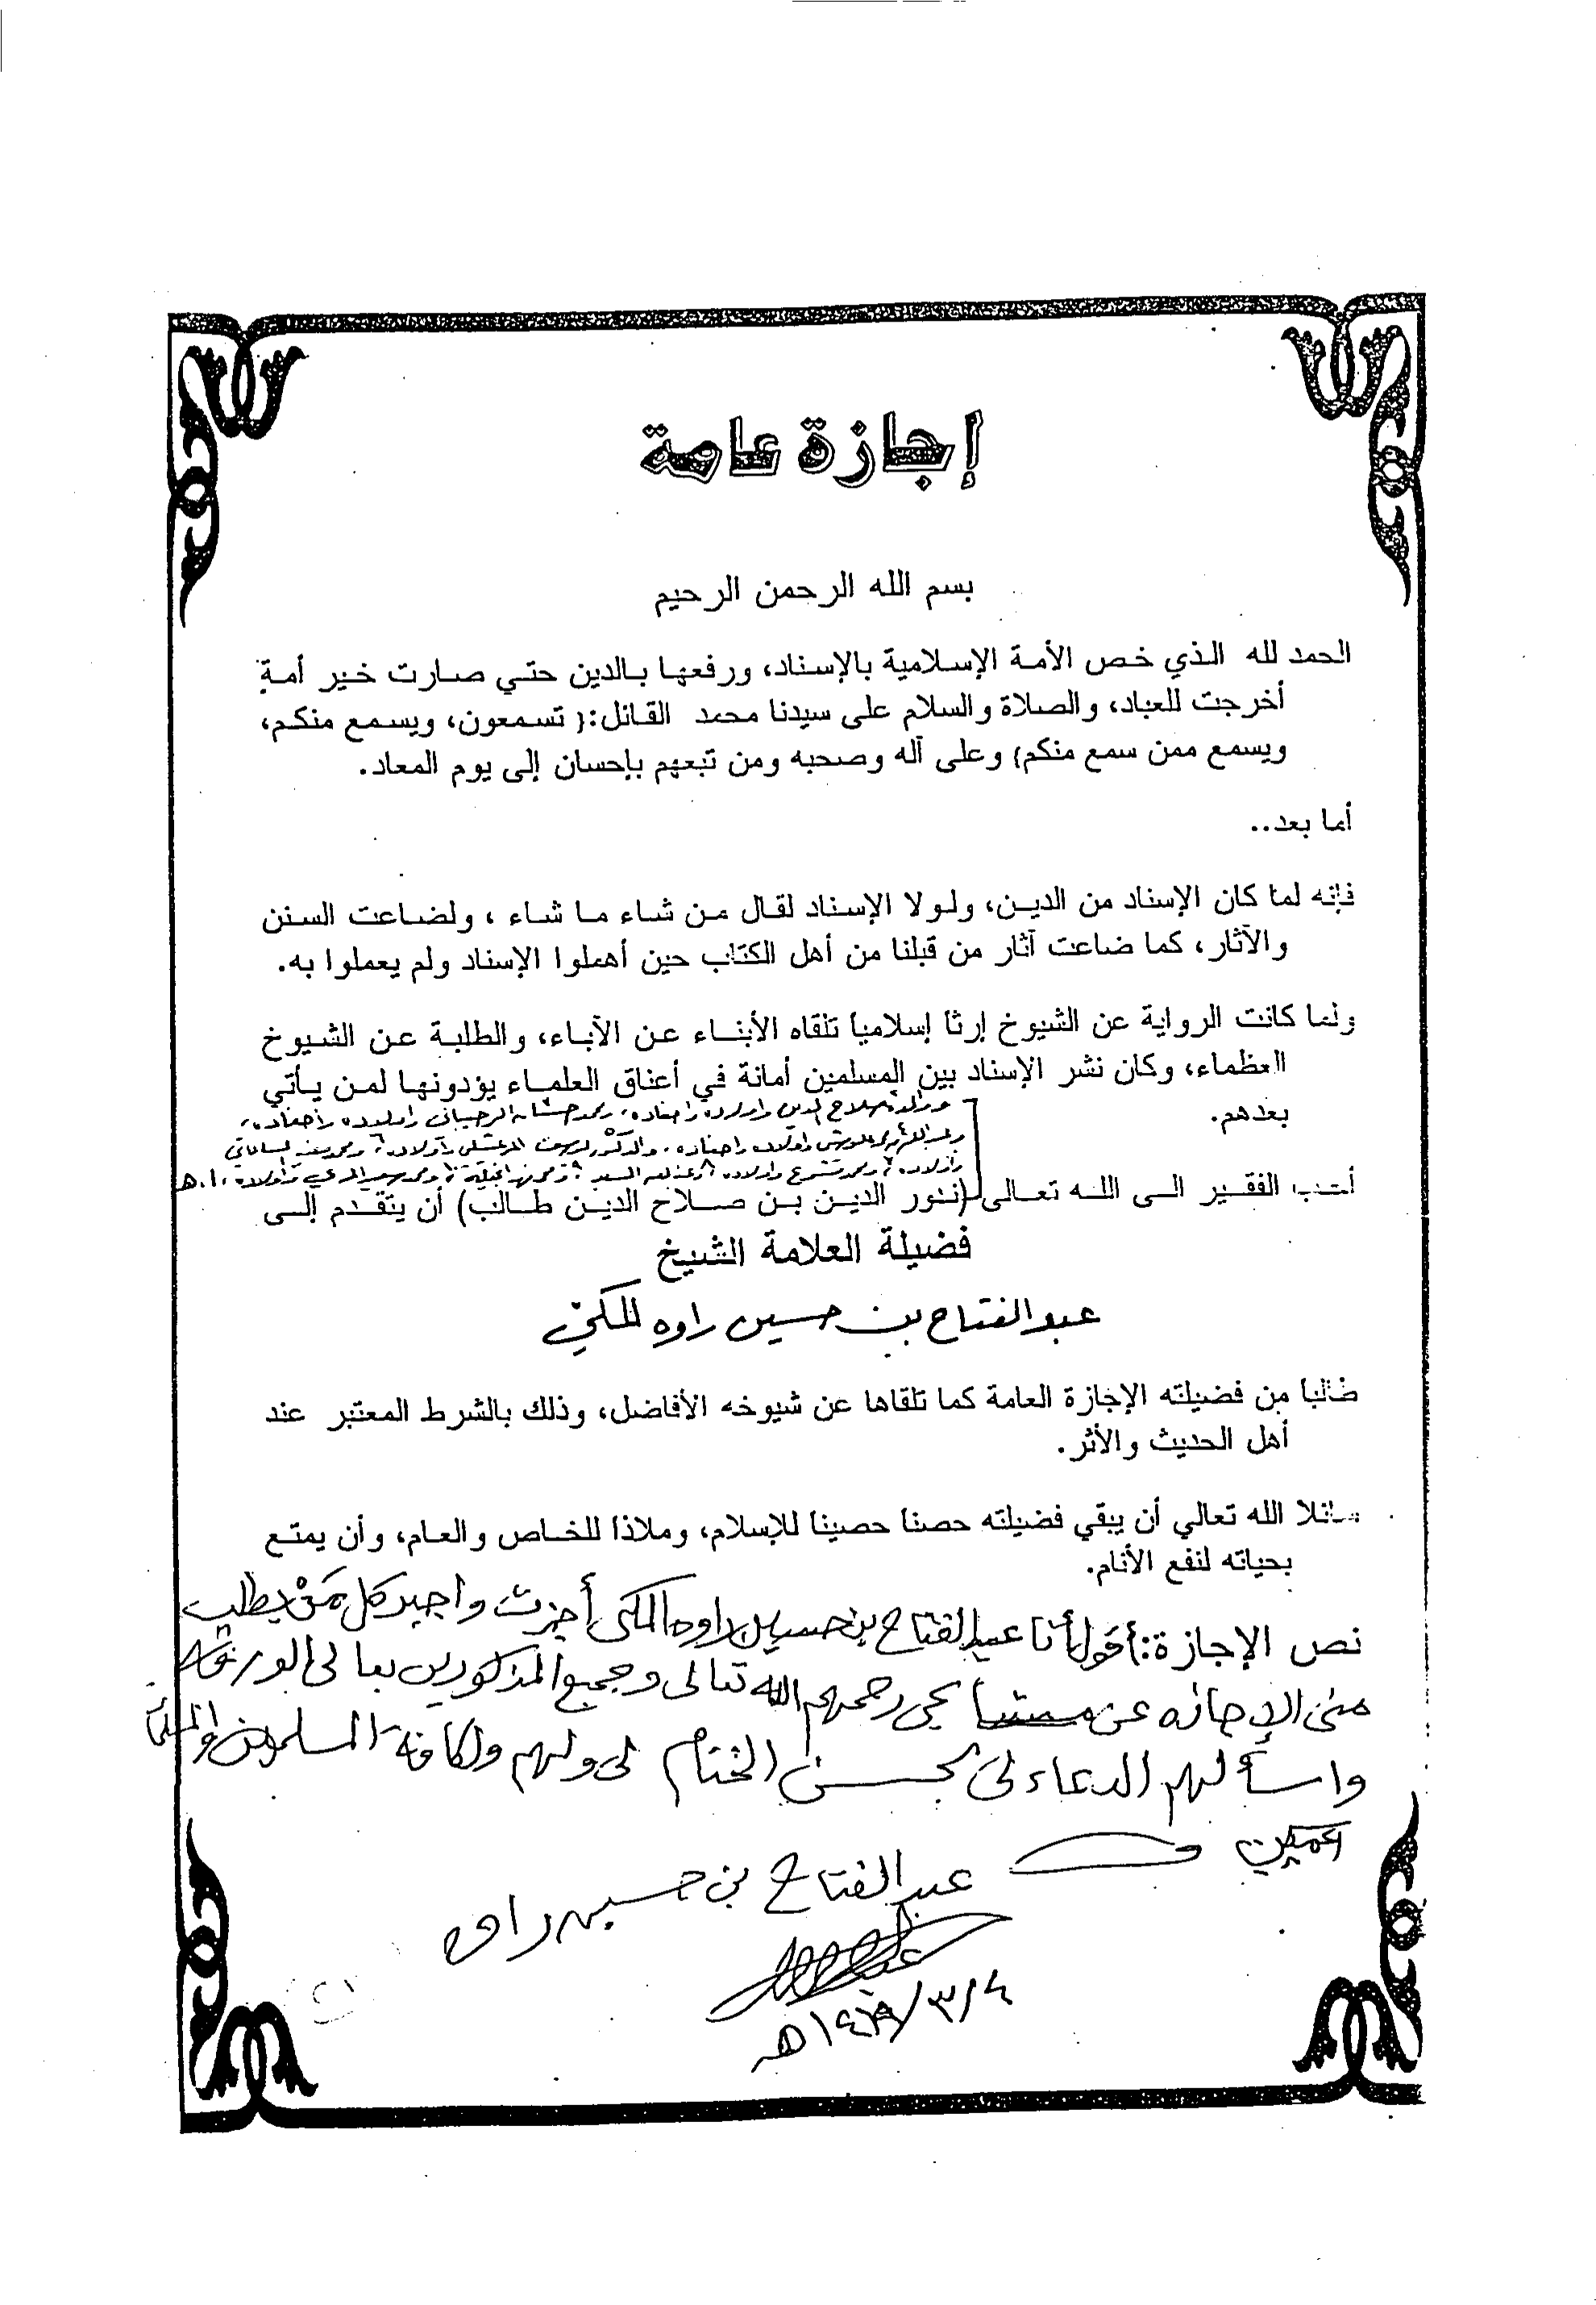 إجازة عامة
بسم الله الرحمن الرحيم
الحمد لله الذي خص الأمة الإسلامية بالإسناد، ورفعها بالدين حتي صارت خير أمة
أخرجت للعباد، والصلاة والسلام على سيدنا محمد القائل:( تسمعون، ويسمع منكم،
ويسمع ممن سمع منكم) وعلى آله وصحبه ومن تبعهم بإحسان إلى يوم المعاد.
أما بعد..
فإنه لما كان الإسناد من الدين، ولولا الإسناد لقال من شاء ما شاء ، ولضاعت السنن
والآثار، كما ضاعت آثار من قبلنا من أهل الكتاب حين أهملوا الإسناد ولم يعملوا به.
ولما كانت الرواية عن الشيوخ إرثا إسلاميا تلقاه الأبناء عن الآباء، والطلبة عن الشيوخ
العظماء، وكان نشر الإسناد بين المسلمين أمانة في أعناق العلماء يؤدونها لمن يأتي
بعدهم.
ووالده صلاح الدين وأولاده وأحفاده، ومحمد وأولاده وأحفاده،
وأولاده وأحفاده، والدكتور يوسف المرعشلي وأولاده، ومحمد
وأولاده، ومحمد وأولاده، ومحمد وأولاده، ا.هـ
أحب الفقير الى الله تعالى (نور الدين بن صلاح الدين طالب) أن يتقدم إلى
فضيلة العلامة الشيخ
عبد الفتاح بن حسين راوه المكي
طالبا من فضيلته الإجازة العامة كما تلقاها عن شيوخه الأفاضل، وذلك بالشرط المعتبر عند
أهل الحديث والأثر.
سائلا الله تعالي أن يبقي فضيلته حصنا حصينا للإسلام، وملاذا للخاص والعام، وأن يمتع
بحياته لنفع الأنام.
نص الإجازة: أقول أنا عبد الفتاح بن حسين راوه المكي أجزت واجيز كل من يطلب
مني الإجازه عن رحمهم الله تعالى وجميع المذكورين بعالى الورقه
واسألهم الدعاء لى بحسن الختام لى ولهم ولكافة المسلمين والمسلمات
آمين
عبد الفتاح بن حسين راوه
١٤١٩/٣/٤هـ